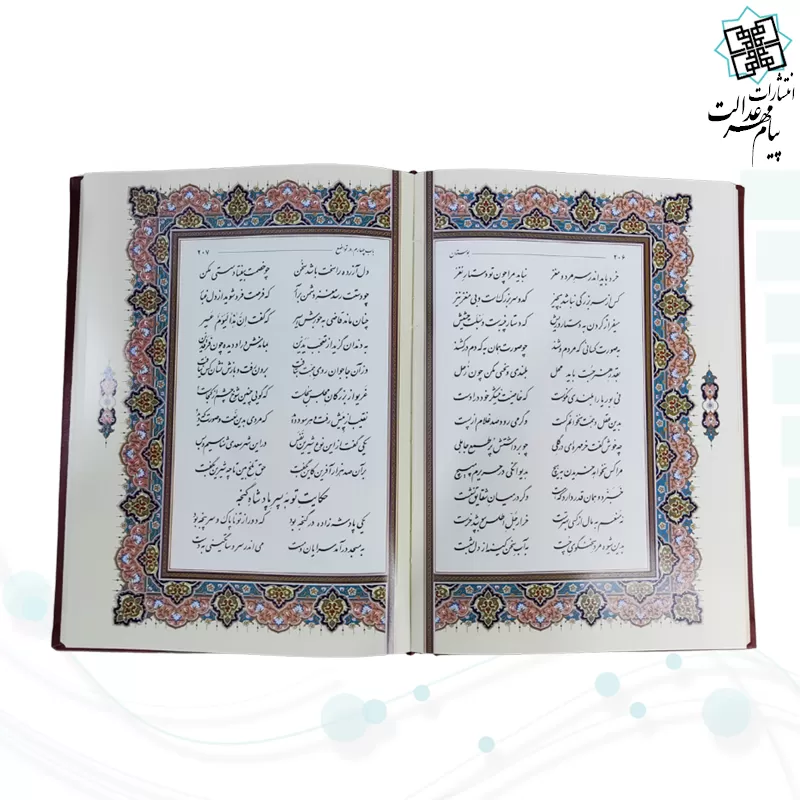 انتشارات
پیام مهر عدالت
۲۰۶ بوستان
خرد باید اندر سر مرد و مغز نباید مرا چون تو دستار نغز
کس از سر بزرگی نباشد بچیز کدو سر بزرگ است و بی مغز نیز
میفراز گردن به دستار و ریش که دستار پنبه است و سبلت حشیش
به صورت کسانی که مردم وشند چو صورت همان به که دم درکشند
بقدر هنر جست باید محل بلندی و نحسی مکن چون زحل
نی بوریا را بلندی نکوست که خاصیت نیشکر خود در اوست
بدین عقل و همت نخوانم کست وگر می رود صد غلام از پست
چه خوش گفت خرمهره ای در گلی چو برداشتش پر طمع جاهلی
مرا کس نخواهد خریدن به هیچ به دیوانگی در حریرم مپیچ
خبزدو همان قدر دارد که هست وگر در میان شقایق نشست
نه منعم به مال از کسی بهترست خر ار جل اطلس بپوشد خرست
بدین شیوه مرد سخنگوی چست به آب سخن کینه از دل بشست
باب چهارم در تواضع ۲۰۷
دل آزرده را سخت باشد سخن چو خصمت بیفتاد سستی مکن
چو دستت رسد مغز دشمن برآر که فرصت فرو شوید از دل غبار
چنان ماند قاضی به جورش اسیر که گفت ان هذا لیوم عسیر
به دندان گزید از تعجب یدین بماندش در او دیده چون فرقدین
وزان جا جوان روی همت بتافت برون رفت و بازش نشان کس نیافت
غریو از بزرگان مجلس بخاست که گویی چنین شوخ چشم از کجاست
نقیب از پیش رفت و هر سو دوید که مردی بدین نعت و صورت که دید
یکی گفت از این نوع شیرین نفس در این شهر سعدی شناسیم و بس
بر آن صد هزار آفرین کاین بگفت حق تلخ بین تا چه شیرین بگفت
حکایت توبه پسر پادشاه گنجه
یکی پادشه زاده در گنجه بود که دور از تو ناپاک و سرپنجه بود
به مسجد درآمد سرایان و مست می اندر سر و ساتگینی به دست